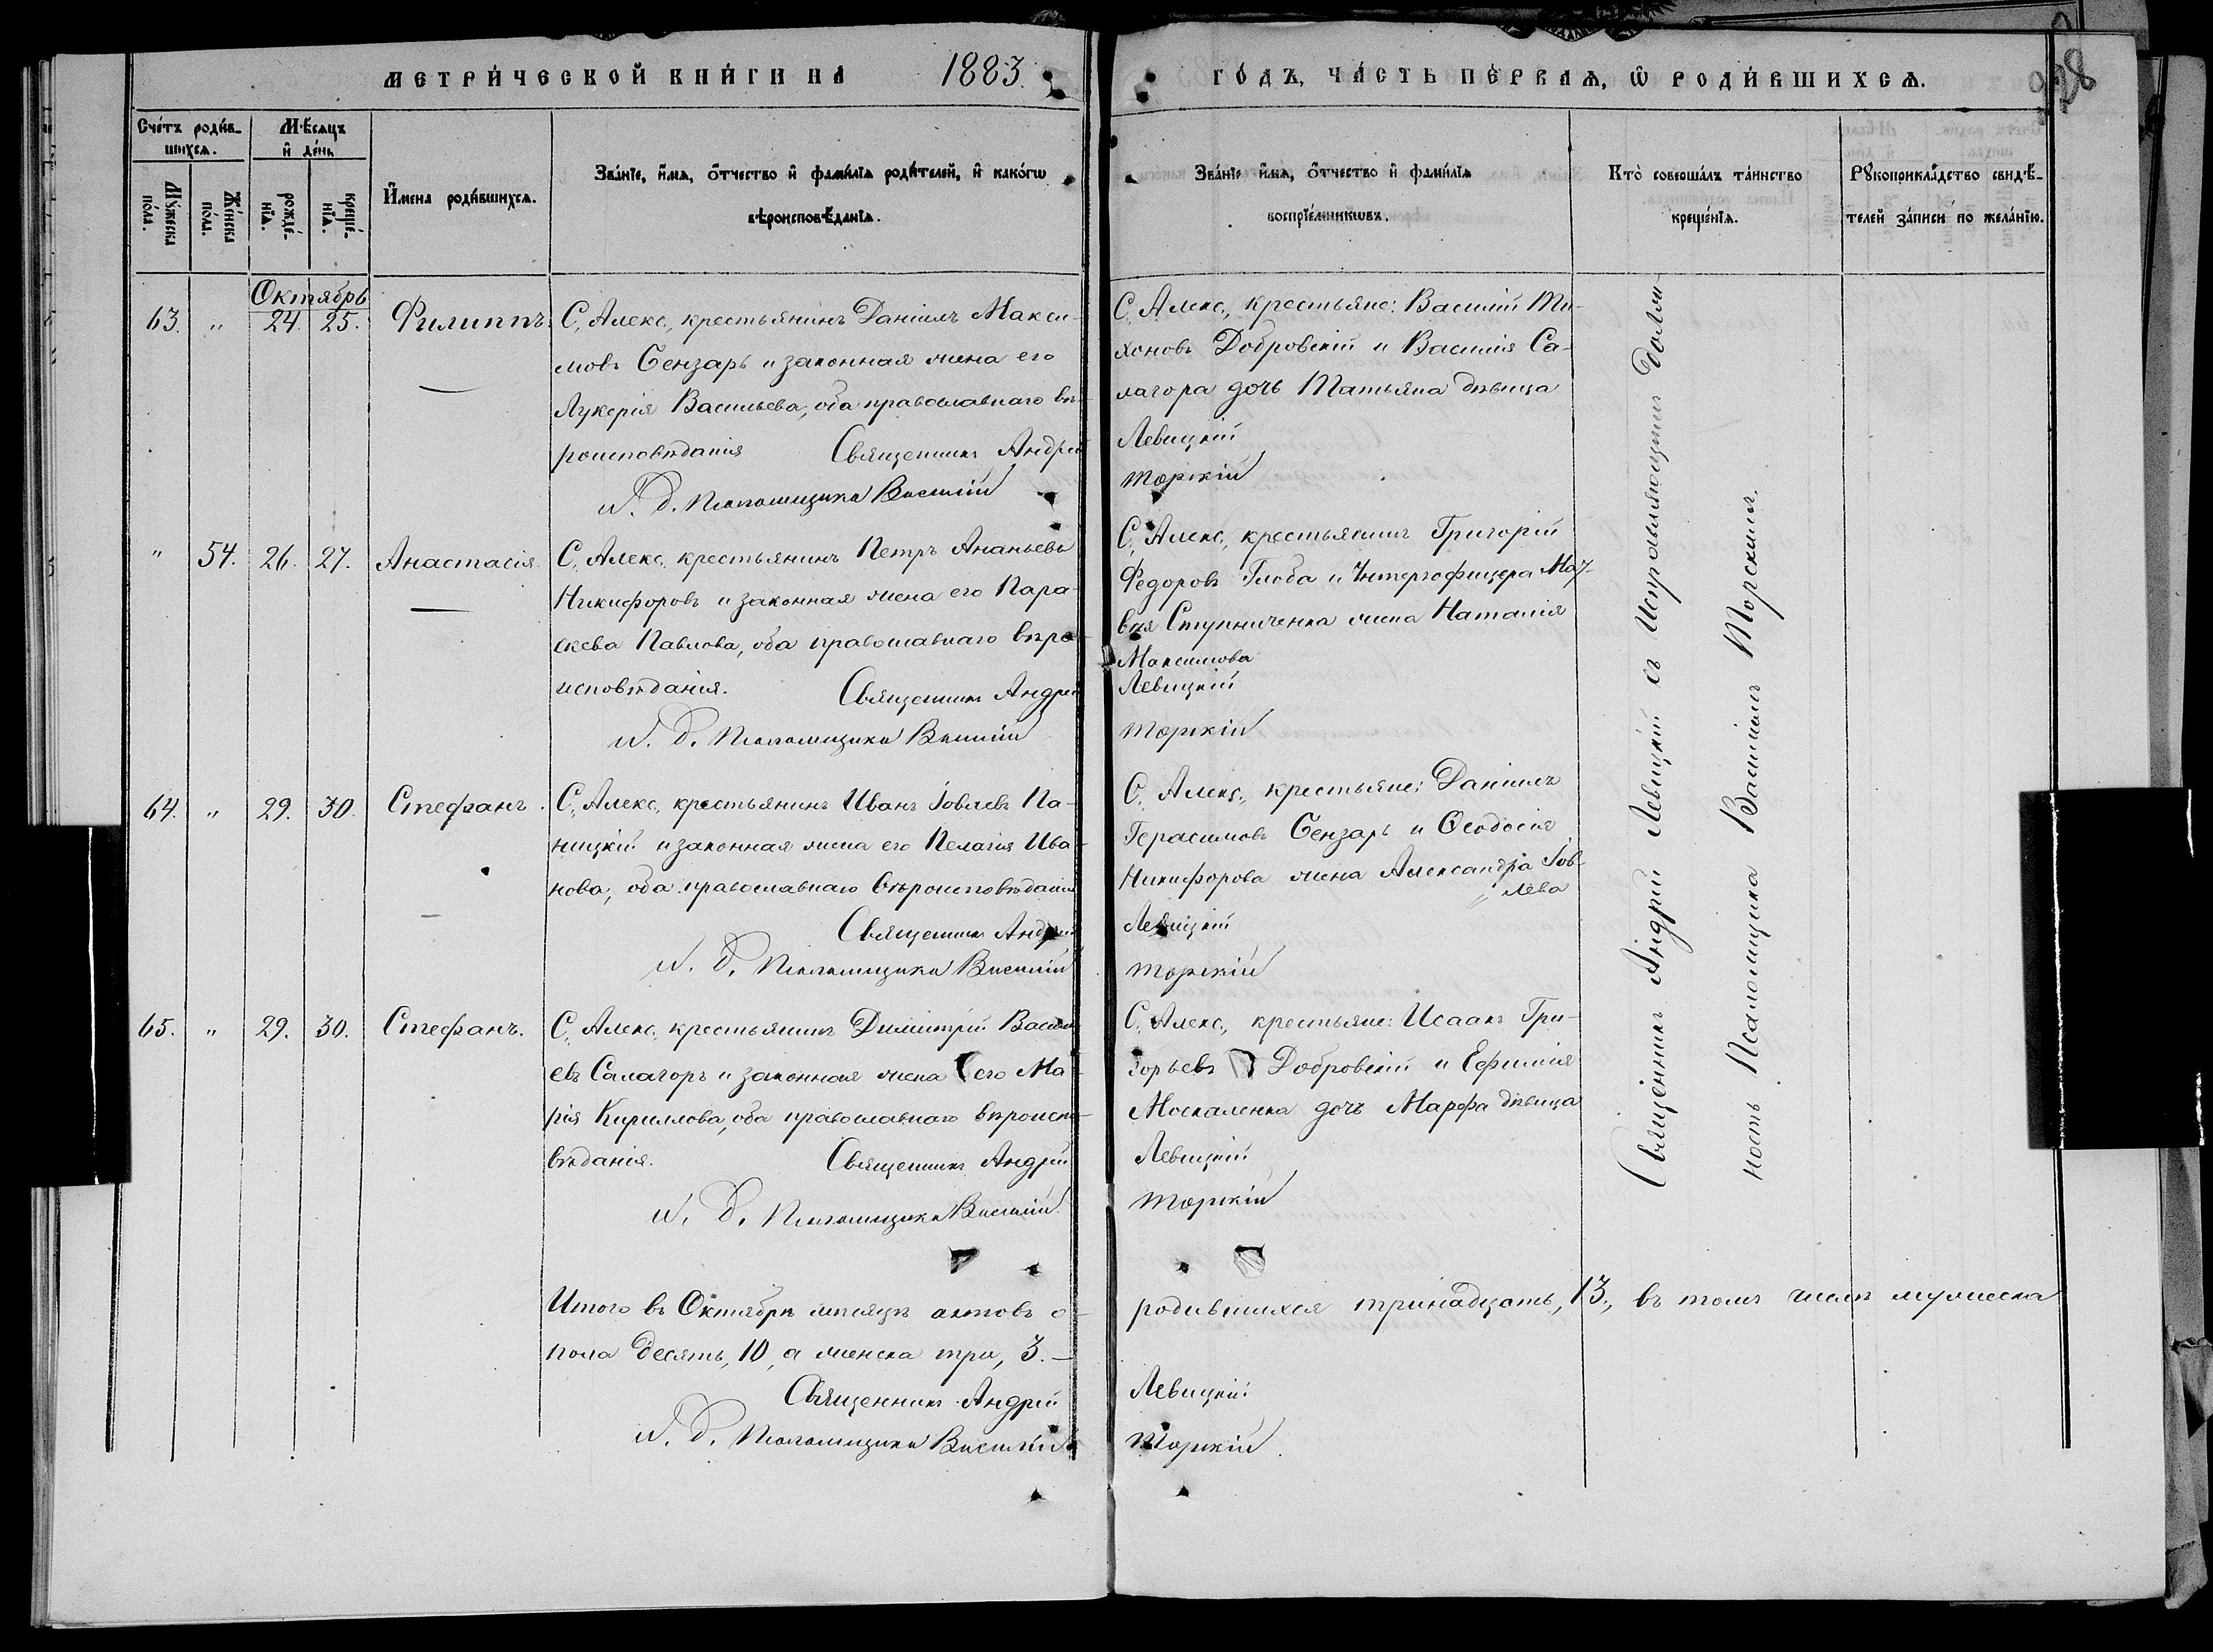 МЕТРИ́ЧЕСКОЙ КНИ́ГИ НА 1883.
ГО́ДЪ, ЧА́СТЬ ПЕ́РВАѦ, Ѡ РОДИ́ВШИХСѦ.
928
Сче́тъ роди́в-
шихсѧ.
Мѣ́сѧцъ
и де́нь
Му́жеска по́ла.
Же́нска по́ла.
рожде́-
нїѧ.
креще́-
нїѧ.
Имена роди́вшихсѧ.
Зва́нїе, и́мѧ, о́тчество и фами́лїѧ роди́телей, и како́гѡ
вѣроисповѣ́данїѧ.
Зва́нїе и́мѧ, о́тчество и фами́лїѧ
воспрїе́мникѡвъ.
Кто̀ соверша́лъ та́инство
креще́нїѧ.
Рꙋкоприкла́дство свидѣ́-
телей за́писи по жела́нїю.
Октябрь
63. " 24. 25. Филиппъ. С. Алекс., крестьянинъ Даніилъ Макси-
мовъ Сензарь и законная жена его
Лукерія Васильева, оба православнаго вѣ-
роисповѣданія Священникъ Андрей
И. д. Псаломщика Василій
С. Алекс., крестьяне: Василій Ти-
хоновъ Добровскій и Василія Са-
лагора дочь Татьяна дѣвица
Левицкій
Торскій
" 54. 26. 27. Анастасія. С. Алекс. крестьянинъ Петръ Ананьевъ
Никифоровъ и законная жена его Пара-
скева Павлова, оба православнаго вѣро-
исповѣданія. Священникъ Андрей
И. д. Псаломщика Василій
С. Алекс., крестьянинъ Григорій
Федоровъ Глоба и Унтерофицера Мат-
вѣя Ступниченка жена Наталія
Максимова
Левицкій
Торскій
64. " 29. 30. Стефанъ. С. Алекс. крестьянинъ Иванъ Іовлевъ Па-
ницкій и законная жена его Пелагія Ива-
нова, оба православнаго вѣроисповѣданія
Священникъ Андрей
И. д. Псаломщика Василій
С. Алекс., крестьяне: Даніилъ
Герасимовъ Сензарь и Ѳеодосія
Никифорова жена Александра Іов-
лева
Левицкій
Торскій
65. " 29. 30. Стефанъ. С. Алекс. крестьянинъ Димитрій Василь-
евъ Салагоръ и законная жена его Ма-
рія Кириллова, оба православнаго вѣроиспо-
вѣданія. Священникъ Андрей
И. д. Псаломщика Василій
С. Алекс., крестьяне: Исаакъ Гри-
горьевъ Добровскій и Ефимія
Москаленка дочь Марфа дѣвица
Левицкій
Торскій
Священникъ Андрей Левицкій съ Исправляющимъ Долж
ность Псаломщика Василіемъ Торскимъ.
Итого въ Октябрѣ мѣсяцѣ актовъ о родившихся тринадцать, 13., въ томъ числѣ мужеска
пола десять, 10, а женска три, 3. —
Священникъ Андрей Левицкій
И. д. Псаломщика Василій Торскій.